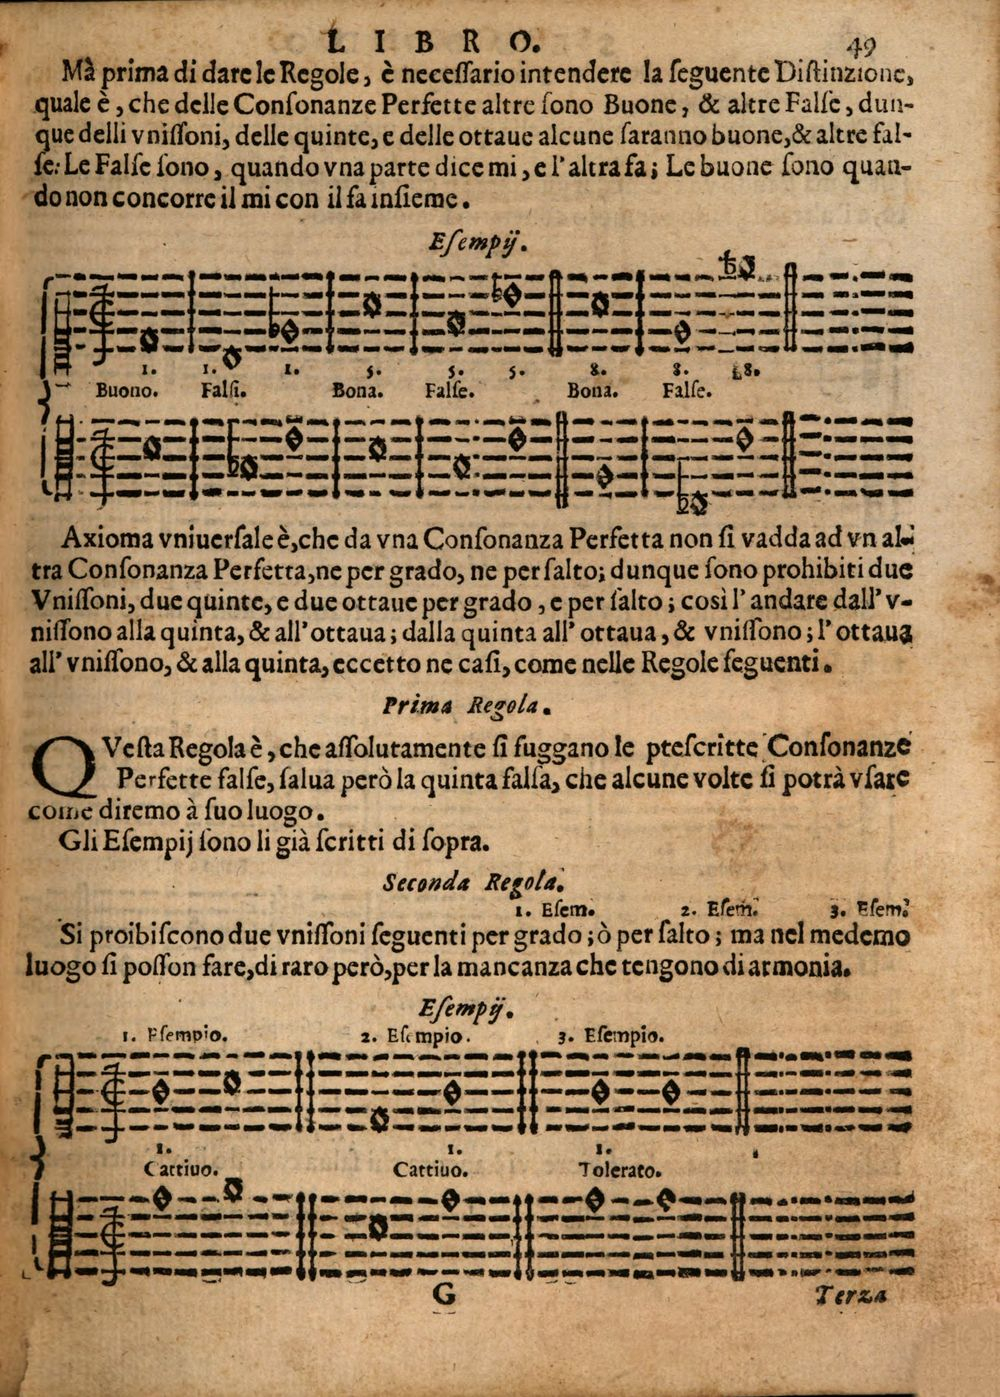 LIBRO. 49
Mà prima di dare le Regole, è neceſſario intendere la ſeguente Diſtinzione,
quale è, che delle Conſonanze Perfette altre ſono Buone, & altre Falſe, dun-
que delli vniſſoni, delle quinte, e delle ottaue alcune ſaranno buone, & altre fal-
ſe: Le Falſe ſono, quando vna parte dice mi, e l'altra fa; Le buone ſono quan-
do non concorre il mi con il fa inſieme.
Eſempij.
1. 1. 1. 5. 5. 5. 8. 8. 8.
Buono. Falſi. Bona. Falſe. Bona. Falſe.
Axioma vniuerſale è, che da vna Conſonanza Perfetta non ſi vadda ad vn al-
tra Conſonanza Perfetta, ne per grado, ne per ſalto; dunque ſono prohibiti due
Vniſſoni, due quinte, e due ottaue per grado, e per ſalto; così l'andare dall'v-
niſſono alla quinta, & all'ottaua; dalla quinta all'ottaua, & vniſſono; l'ottaua
all'vniſſono, & alla quinta, eccetto ne caſi, come nelle Regole ſeguenti.
Prima Regola.
QVeſta Regola è, che aſſolutamente ſi fuggano le pteſcritte Conſonanze
Perfette falſe, ſalua però la quinta falſa, che alcune volte ſi potrà vſare
come diremo à ſuo luogo.
Gli Eſempij ſono li già ſcritti di ſopra.
Seconda Regola.
1. Eſem. 2. Eſem. 3. Eſem.
Si proibiſcono due vniſſoni ſeguenti per grado; ò per ſalto; ma nel medemo
luogo ſi poſſon fare, di raro però, per la mancanza che tengono di armonia.
Eſempij.
1. Eſempio. 2. Eſempio. 3. Eſempio.
1. 1. 1.
Cattiuo. Cattiuo. Tolerato.
G Terza